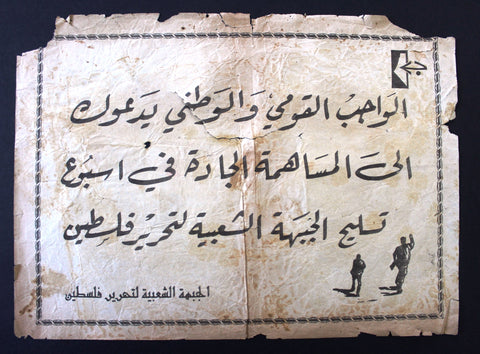 الواجب القومي والوطني يدعوك
الى المساهمة الجادة في اسبوع
تسليح الجبهة الشعبية لتحرير فلسطين
الجبهة الشعبية لتحرير فلسطين